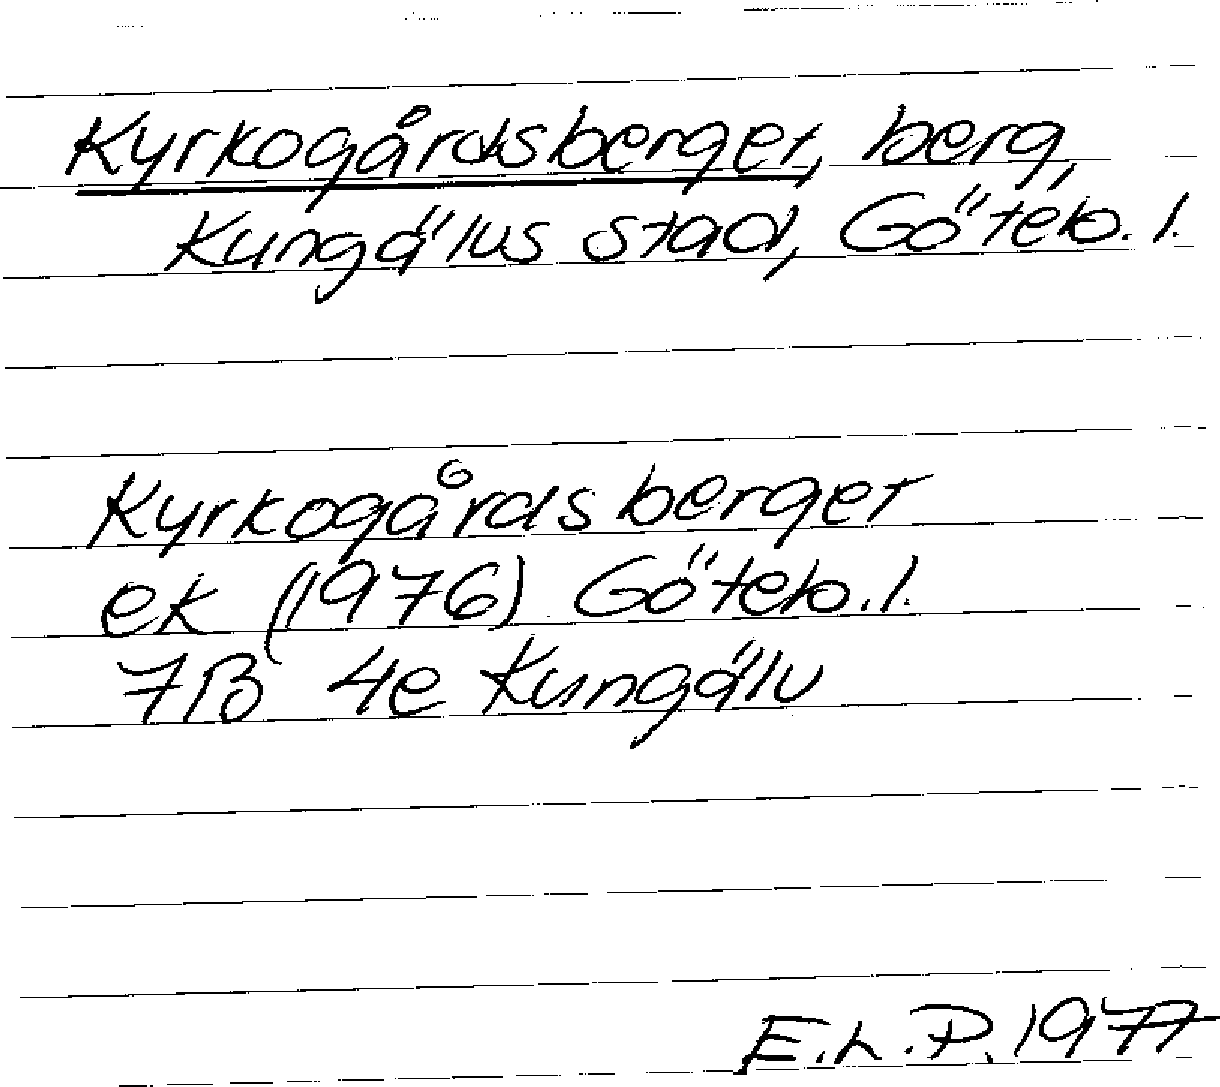 Kyrkogårdsberget, berg,
Kungälvs stad, Göteb. l.
Kyrkogårdsberget
ek (1976) Göteb. l.
7B 4e Kungälv
E.L.P. 1977